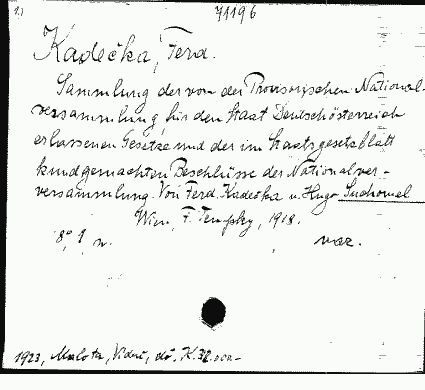 1.)
71196
Kadečka, Ferd.
Sammlung der von der Provisorischen National-
versammlung für den Staat Deutschösterreich
erlassenen Gesetze und der im Staatsgesetzblatt
kundgemachten Beschlüsse der Nationalver-
versammlung. Von Ferd. Kadečka u. Hugo Suchomel
Wien, F. Tempsky, 1918.
8°, 1 n. vaz.
1923, Malota, Vídeň, dř. K. 32.000-